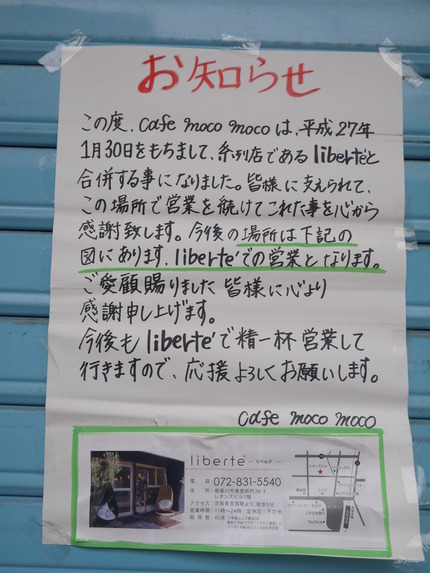 お知らせ
この度、cafe moco mocoは、平成27年
1月30日をもちまして、系列店であるlibertéと
合併する事になりました。皆様に支えられて、
この場所で営業を続けてこれた事を心から
感謝致します。今後の場所は下記の
図にあります、liberté での営業となります。
ご愛顧賜りました 皆様に心より
感謝申し上げます。
今後も liberté で精一杯営業して
行きますので、応援よろしくお願いします。
cafe moco moco
liberté ーリベルテー
電話 072-831-5540
住所
レオンズビル1階
アクセス
営業時間 11時〜24時 定休日 不定休
総席数 40席